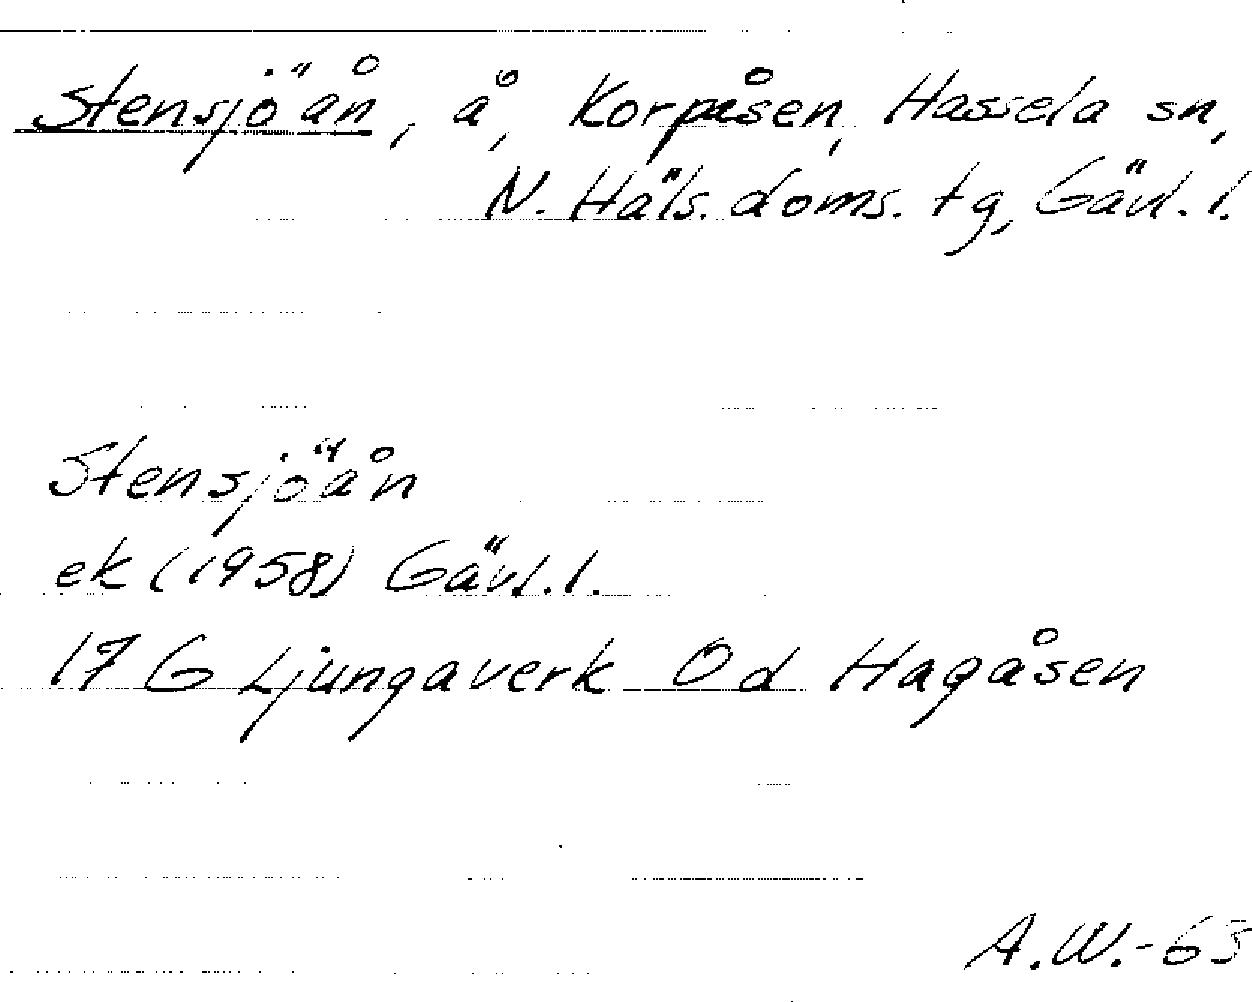 Stensjöån, å, Korpåsen, Hassela sn,
N. Häls. doms. tg, Gävl. l.
Stensjöån
ek (1958) Gävl. l.
17 G Ljungaverk 0d Hagåsen
A.W.-63